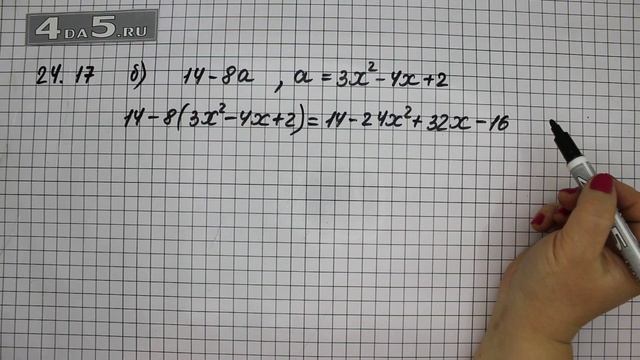 4DA5.RU
24.17 б) 14-8a , a = 3x²-4x+2
14-8(3x²-4x+2)=14-24x²+32x-16